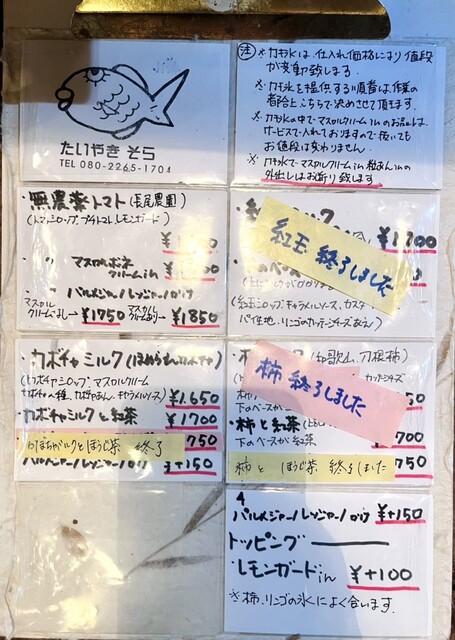 たいやき そら
TEL 080-2265-1704
注 ※カキ氷は、仕入れ価格により値段
が変動致します。
※カキ氷を提供する順番は、作業の
都合上こちらで決めさせて頂きます。
※カキ氷の中でマスカルクリームinのお品は、
サービスで入れておりますので抜いても
お値段は変わりません。
※カキ氷でマスカルクリームin、粒あんinの
外出しはお断り致します
・無農薬トマト(長尾農園)
(トマトシロップ、プチトマト、レモンガード)
〃 マスカルポネ
クリームin
〃 パルメジャーノレッジャーノかけ
マスカル
クリームなし→ ¥1750 マスカル
クリームあり→ ¥1850
¥1700
紅玉 終了しました
(紅玉シロップ、キャラメルソース、カスタ
パイ生地、リンゴの
・カボチャミルク
(カボチャシロップ、マスカルクリーム
カボチャの種、カボチャあん、キャラメルソース) ¥1650
・カボチャミルクと紅茶 ¥1700
かぼちゃミルクとほうじ茶 終了 750
パルメジャーノレッジャーノかけ ¥+150
(和歌山、刀根柿)
柿 終了しました
下のベースが
・柿と紅茶
下のベースが紅茶 700
柿と ほうじ茶 終了しました 750
パルメジャーノレッジャーノかけ ¥+150
トッピング
レモンガードin ¥+100
※柿、リンゴの氷によく合います。